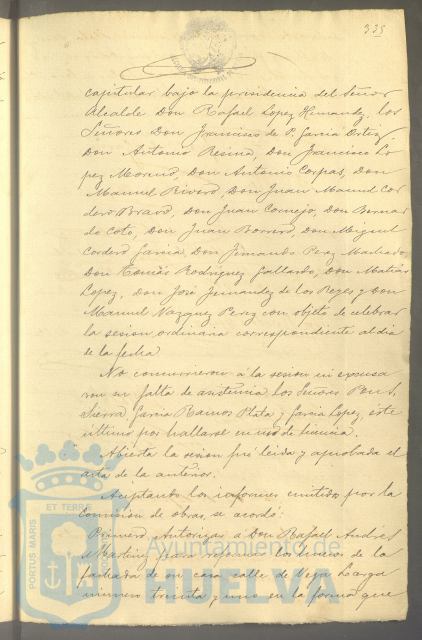 335
capitular bajo la presidencia del Señor
Alcalde Don Rafael Lopez Hernandez, los
Señores Don Francisco de P. Garcia Ortiz,
Don Antonio Resina, Don Francisco Lo
pez Moreno, Don Antonio Corpas, Don
Manuel Rivero, Don Juan Manuel Cor
dero Bravo, Don Juan Cornejo, Don Bernar
do Coto, Don Juan Borrero, Don Miguel
Cordero Garcia, Don Fernando Perez Machado,
Don Tomás Rodriguez Gallardo, Don Matias
Lopez, Don José Fernandez de los Reyes y Don
Manuel Vazquez Perez con objeto de celebrar
la sesion ordinaria correspondiente al dia
de la fecha
No concurrieron á la sesion ni excusa
ron su falta de asistencia los Señores
Sierra Garcia Ramos Plata y Garcia Lopez, este
último por hallarse en uso de licencia.
Abierta la sesion fué leida y aprobada el
acta de la anterior.
Aceptando los informes emitidos por la
comision de obras, se acordó:
Primero. Autorizar a Don Rafael Andres
Martin para reparar los de la
fachada de su casa calle de Vega Larga
numero treinta y uno en la forma que
PORTUS MARIS
ET TERRAE
CUSTODIA
Ayuntamiento de
HUELVA